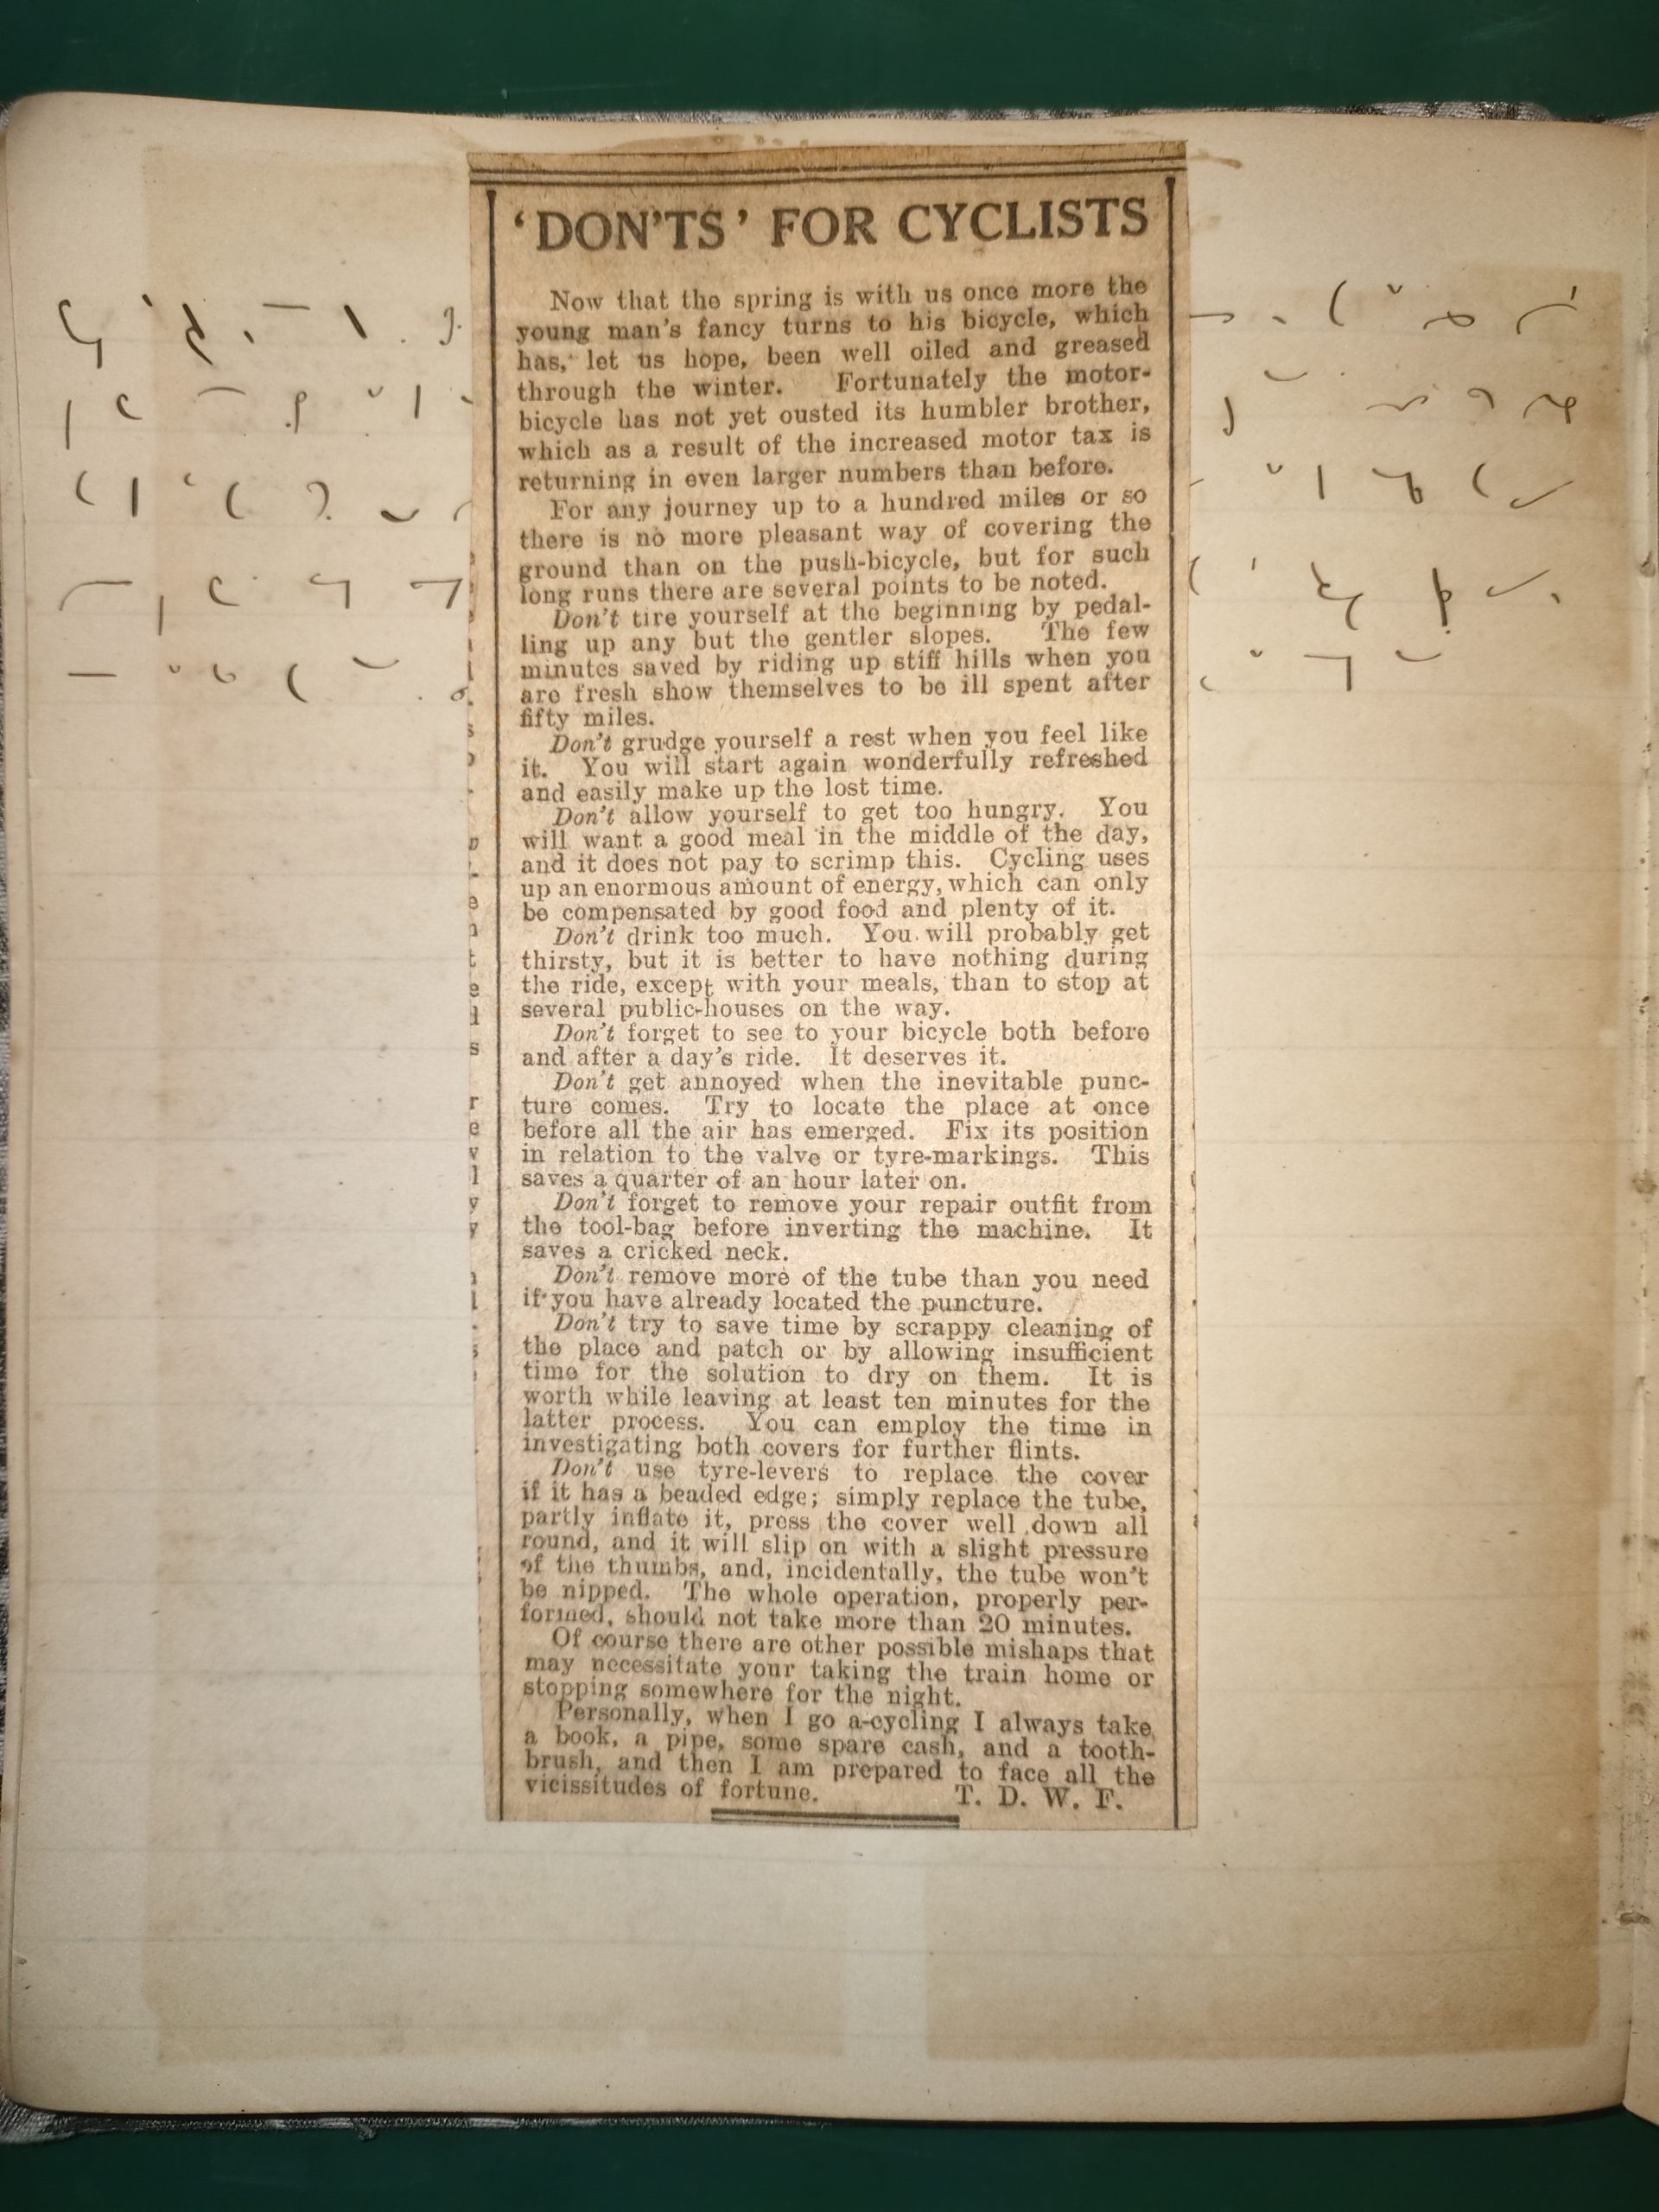 ‘DON'TS’ FOR CYCLISTS
Now that the spring is with us once more the
young man's fancy turns to his bicycle, which
has, let us hope, been well oiled and greased
through the winter. Fortunately the motor-
bicycle has not yet ousted its humbler brother,
which as a result of the increased motor tax is
returning in even larger numbers than before.
For any journey up to a hundred miles or so
there is no more pleasant way of covering the
ground than on the push-bicycle, but for such
long runs there are several points to be noted.
Don't tire yourself at the beginning by pedal-
ling up any but the gentler slopes. The few
minutes saved by riding up stiff hills when you
are fresh show themselves to be ill spent after
fifty miles.
Don't grudge yourself a rest when you feel like
it. You will start again wonderfully refreshed
and easily make up the lost time.
Don't allow yourself to get too hungry. You
will want a good meal in the middle of the day,
and it does not pay to scrimp this. Cycling uses
up an enormous amount of energy, which can only
be compensated by good food and plenty of it.
Don't drink too much. You will probably get
thirsty, but it is better to have nothing during
the ride, except with your meals, than to stop at
several public-houses on the way.
Don't forget to see to your bicycle both before
and after a day's ride. It deserves it.
Don't get annoyed when the inevitable punc-
ture comes. Try to locate the place at once
before all the air has emerged. Fix its position
in relation to the valve or tyre-markings. This
saves a quarter of an hour later on.
Don't forget to remove your repair outfit from
the tool-bag before inverting the machine. It
saves a cricked neck.
Don't remove more of the tube than you need
if you have already located the puncture.
Don't try to save time by scrappy cleaning of
the place and patch or by allowing insufficient
time for the solution to dry on them. It is
worth while leaving at least ten minutes for the
latter process. You can employ the time in
investigating both covers for further flints.
Don't use tyre-levers to replace the cover
if it has a beaded edge; simply replace the tube,
partly inflate it, press the cover well down all
round, and it will slip on with a slight pressure
of the thumbs, and, incidentally, the tube won't
be nipped. The whole operation, properly per-
formed, should not take more than 20 minutes.
Of course there are other possible mishaps that
may necessitate your taking the train home or
stopping somewhere for the night.
Personally, when I go a-cycling I always take
a book, a pipe, some spare cash, and a tooth-
brush, and then I am prepared to face all the
vicissitudes of fortune. T. D. W. F.